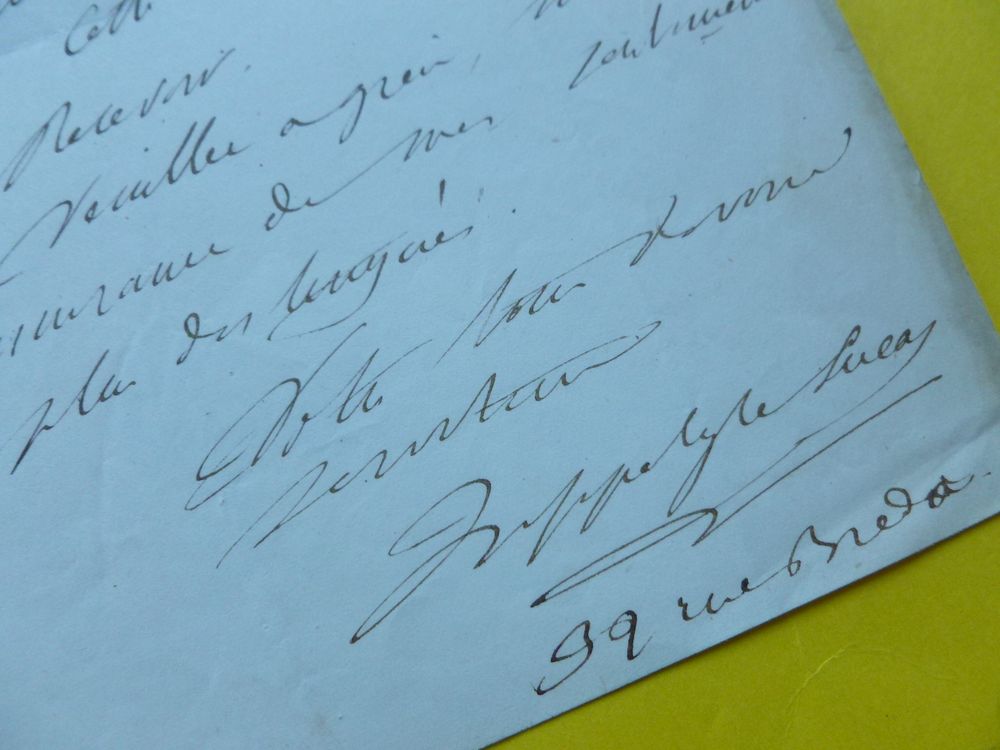 Cette
Recevoir.
Veuillez agréer,
assurance de mes sentimens
plus distingués.
Votre tout dévoué
serviteur
Hippolyte Lucas
39 rue Breda.